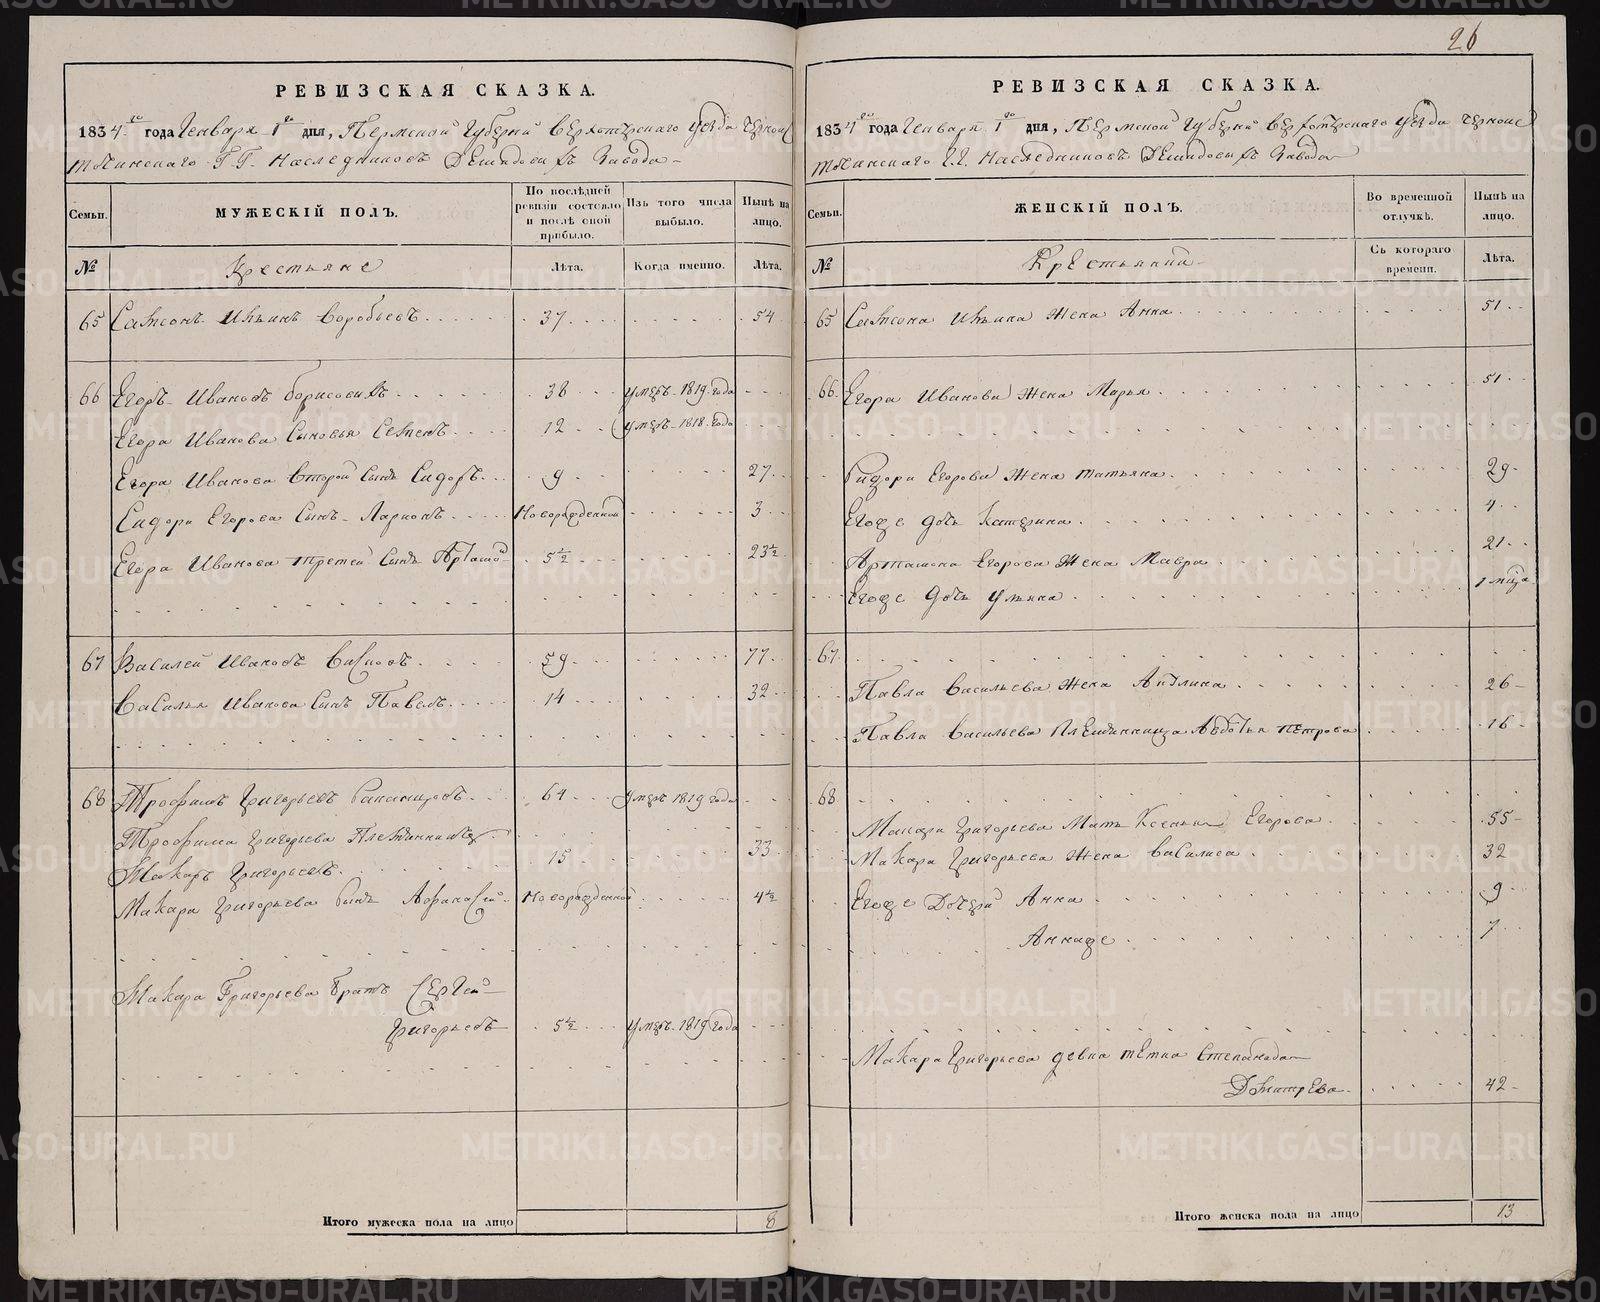 26
РЕВИЗСКАЯ СКАЗКА.
1834 го года Генваря 1 го дня, Пермской Губернии Верхотурскаго уезда Черноис
точинскаго Г.Г. Наследниковъ Демидовыхъ Завода
Семьи.
МУЖЕСКІЙ ПОЛЪ.
По послѣдней ревизіи состояло и послѣ оной прибыло.
Изъ того числа выбыло.
Нынѣ на лицо.
№
Крестьяне
Лѣта.
Когда именно.
Лѣта.
65 Самсонъ Ильинъ Воробьевъ 37 54
66 Егоръ Ивановъ Борисовыхъ 38 умеръ 1819 года
Егора Иванова Сыновья Семенъ 12 умеръ 1818 года
Егора Иванова Второй Сынъ Сидоръ 9 27
Сидора Егорова Сынъ Ларионъ Новорожденной 3
Егора Иванова третей Сынъ Артамонъ 5½ 23½
67 Василей Ивановъ 59 77
Василья Иванова Сынъ Павелъ 14 32
68 Трофимъ Григорьевъ 64 умеръ 1819 года
Трофима Григорьева Племянникъ
Макаръ Григорьевъ 15 33
Макара Григорьева Сынъ Афанасей Новорожденной 4½
Макара Григорьева братъ Сергей
Григорьевъ 5½ умеръ 1819 года
Итого мужеска пола на лицо 8
РЕВИЗСКАЯ СКАЗКА.
1834 го года Генваря 1 го дня, Пермской Губернии Верхотурскаго уезда Черноис
точинскаго Г.Г. Наследниковъ Демидовыхъ Завода
Семьи.
ЖЕНСКІЙ ПОЛЪ.
Во временной отлучкѣ.
Нынѣ на лицо.
№
Крестьянки
Съ котораго времени.
Лѣта.
65 Самсона Ильина Жена Анна 51
66 Егора Иванова Жена Марья 51
Сидора Егорова Жена Татьяна 29
Егоже дочь Катерина 4
Артамона Егорова Жена Мавра 21
Егоже дочь Ульяна 1 мца
67
Павла Васильева Жена Акилина 26
Павла Васильева Племянница Авдотья Петрова 16
68
Макара Григорьева Мать Ксенья Егорова 55
Макара Григорьева Жена Василиса 32
Егоже Дочери Анна 9
Аннаже 7
Макара Григорьева девка тетка Степанида
Дмитрева 42
Итого женска пола на лицо 13
METRIKI.GASO-URAL.RU